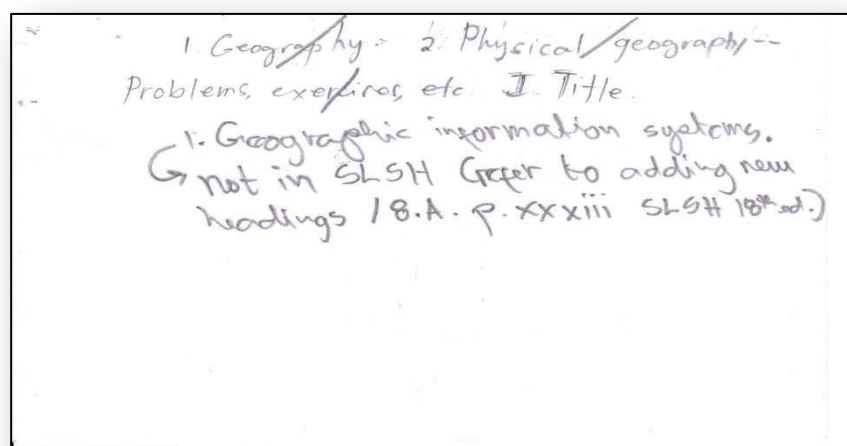 1 Geography. 2 Physical geography--
Problems, exercises, etc I Title.
1. Geographic information systems.
not in SLSH (refer to adding new
headings / 8.A. p. xxxiii SLSH 18th ed.)